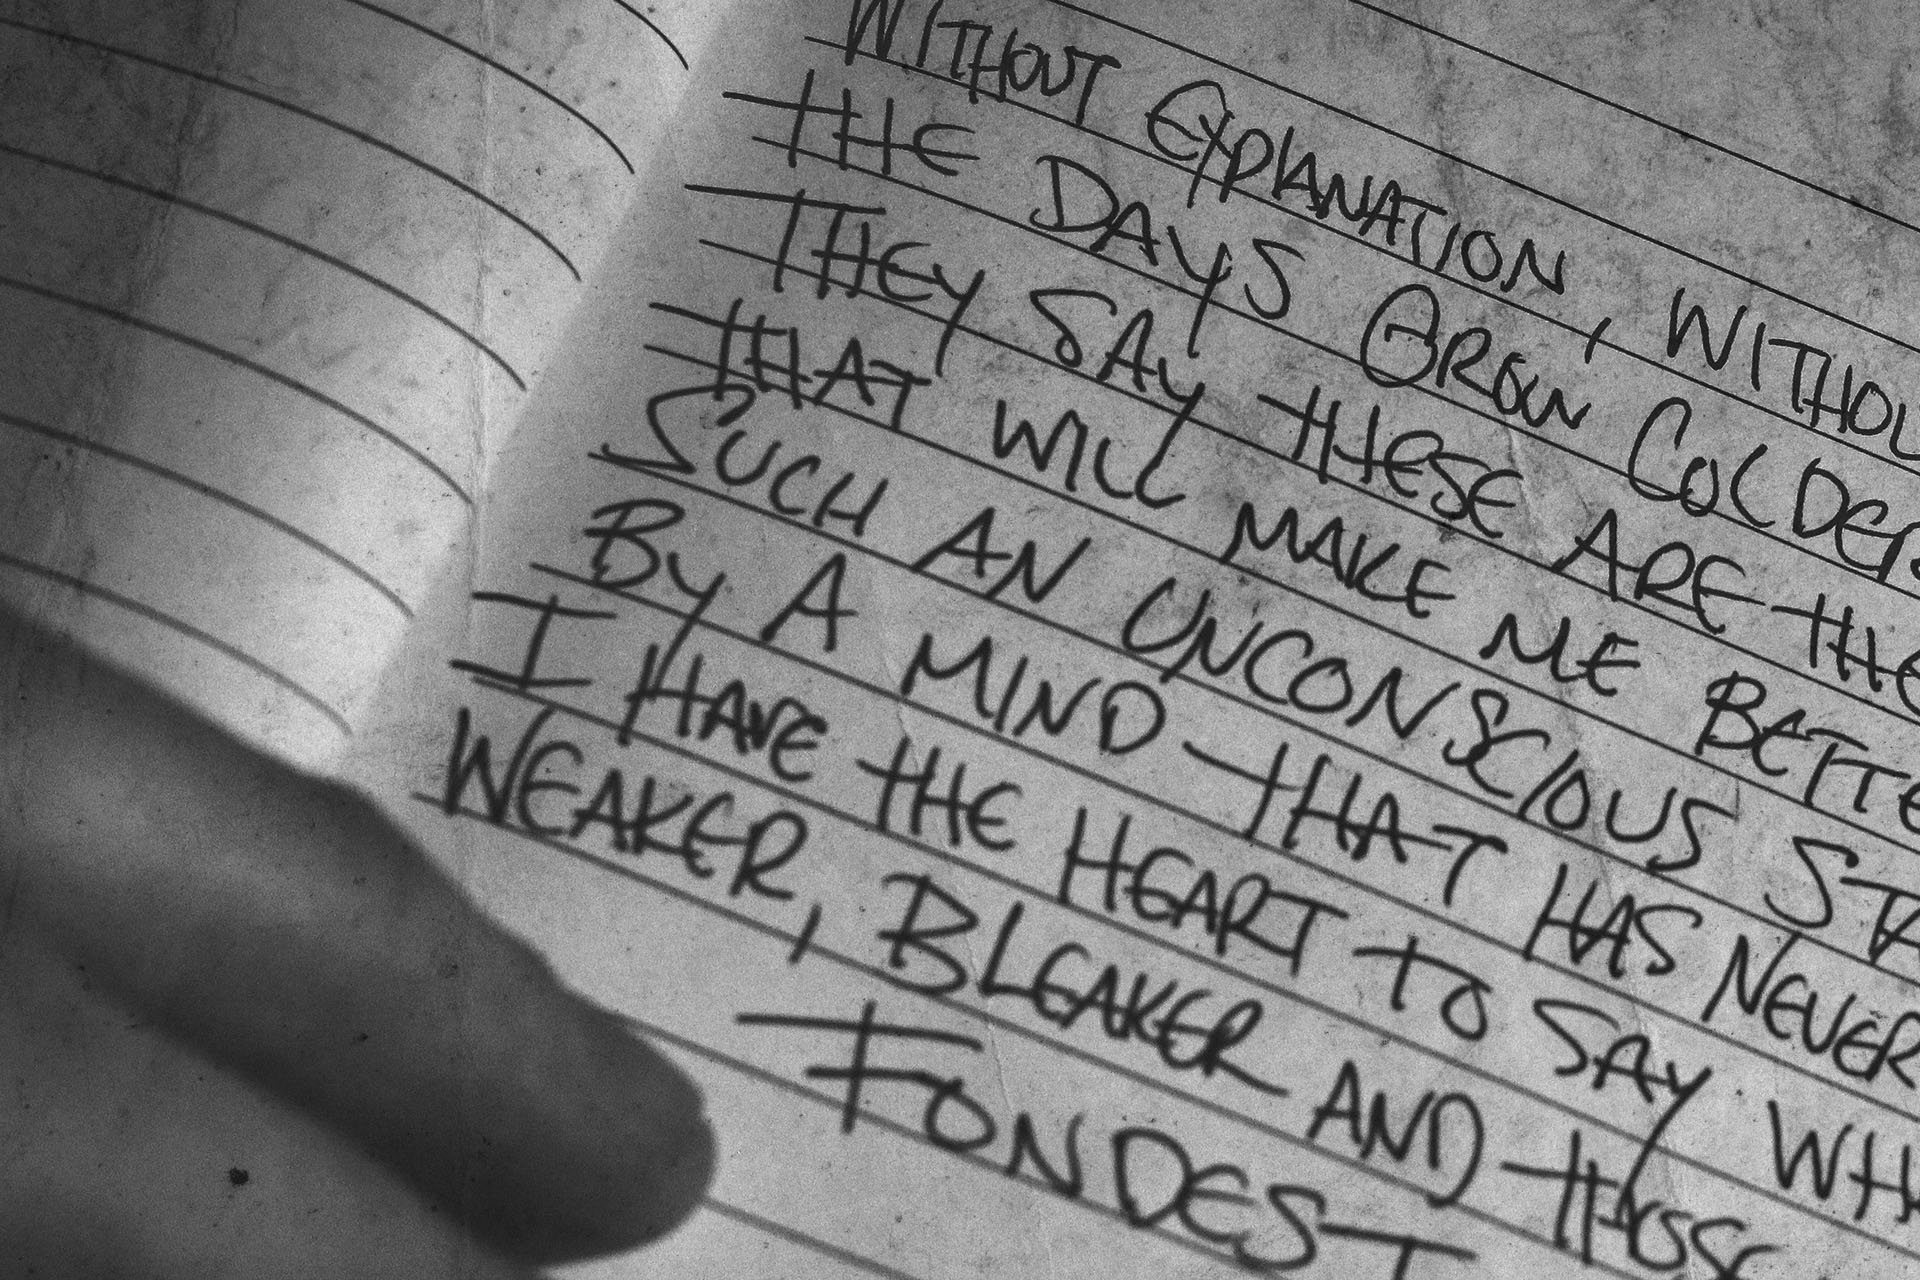 WITHOUT EXPLANATION, WITHOU
THE DAYS GROW COLDER
THEY SAY THESE ARE THE
THAT WILL MAKE ME BETTE
SUCH AN UNCONSCIOUS STA
BY A MIND THAT HAS NEVER
I HAVE THE HEART TO SAY WH
WEAKER, BLEAKER AND THOSE
FONDEST